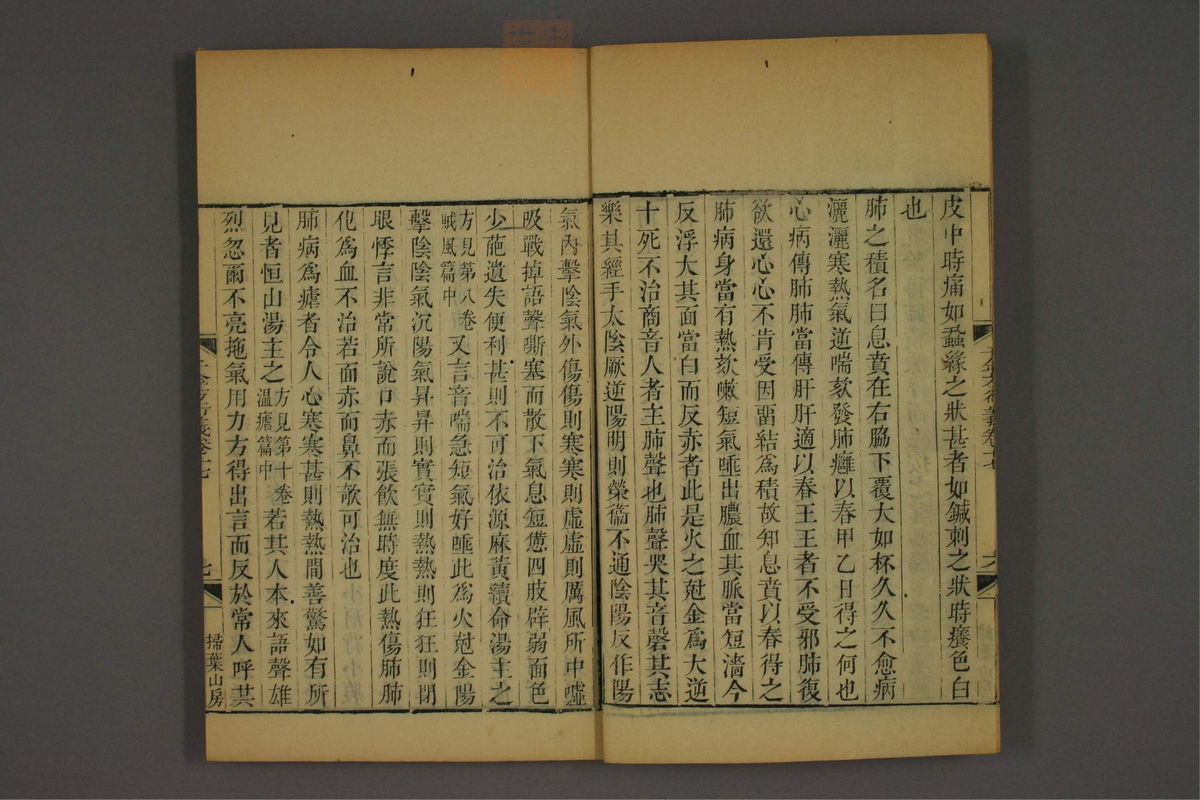 皮中時痛如蝨緣之狀甚者如鍼刺之狀時癢色白
也
肺之積名曰息賁在右脇下覆大如杯久久不愈病
灑灑寒熱氣逆喘欬發肺癰以春甲乙日得之何也
心病傳肺肺當傳肝肝適以春王王者不受邪肺復
欲還心心不肯受因畱結爲積故知息賁以春得之
肺病身當有熱欬嗽短氣唾出膿血其脈當短濇今
反浮大其面當白而反赤者此是火之尅金爲大逆
十死不治商音人者主肺聲也肺聲哭其音磬其志
樂其經手太陰厥逆陽明則榮衞不通陰陽反作陽
氣內擊陰氣外傷傷則寒寒則虛虛則厲風所中噓
吸戰掉語聲嘶塞而散下氣息短憊四肢辟弱面色
少葩遺失便利甚則不可治依源麻黃續命湯主之
方見第八卷
賊風篇中
又言音喘急短氣好唾此爲火尅金陽
擊陰陰氣沉陽氣昇昇則實實則熱熱則狂狂則閉
眼悸言非常所說口赤而張飮無時度此熱傷肺肺
化爲血不治若面赤而鼻不欹可治也
肺病爲瘧者令人心寒寒甚則熱熱間善驚如有所
見者恒山湯主之
方見第十卷
溫瘧篇中
若其人本來語聲雄
烈忽爾不亮拖氣用力方得出言而反於常人呼共
掃葉山房